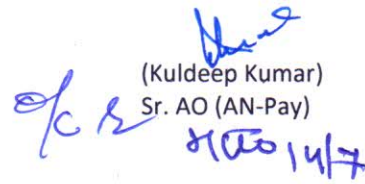 (Kuldeep Kumar)
o/c Sr. AO (AN-Pay)
14/7